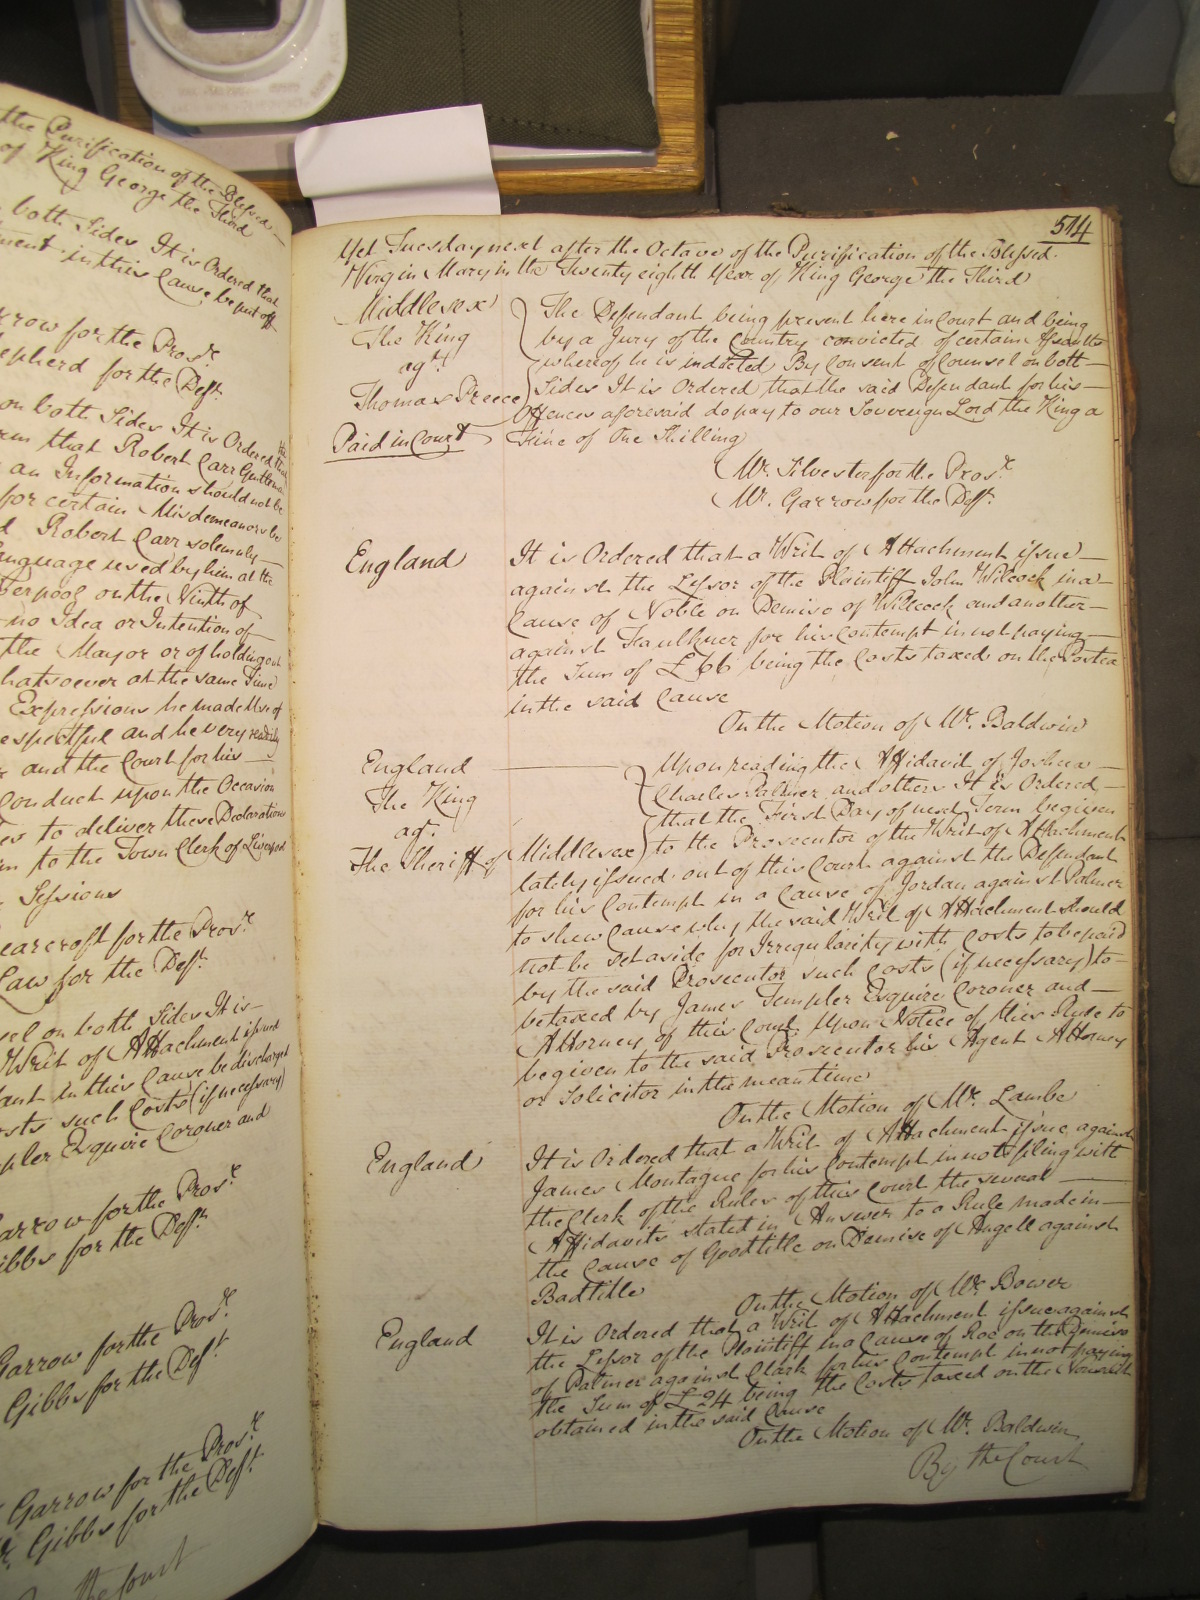 the Purification of the Blessed
of King George the Third
both Sides It is Ordered that
in this Cause be put off
for the Pros.r
for the Deft.
on both Sides It is Ordered
that Robert Carr Gentleman
an Information should not be
for certain Misdemeanors be
Robert Carr solemnly
Language used by him at the
on the Ninth of
no Idea or Intention of
the Mayor or of holding out
whatsoever at the same Time
Expressions he made Use of
and he very readily
and the Court for his
Conduct upon the Occasion
to deliver these Declarations
to the Town Clerk of Liverpool
Sessions
Bearcroft for the Pros.r
Law for the Deft.
on both Sides It is
Writ of Attachment issued
in this Cause be discharged
Costs such Costs (if necessary)
Templer Esquire Coroner and
Garrow for the Pros.r
Gibbs for the Deft.
Garrow for the Pros.r
Gibbs for the Deft.
Garrow for the Pros.r
Gibbs for the Deft.
By the Court
514
Yet Tuesday next after the Octave of the Purification of the Blessed
Virgin Mary in the Twenty eighth Year of King George the Third
Middlesex
The King
agt.
Thomas Preece
Paid in Court
The Defendant being present here in Court and being
by a Jury of the Country convicted of certain Assaults
whereof he is indicted By Consent of Counsel on both
Sides It is Ordered that the said Defendant for his
Offences aforesaid do pay to our Sovereign Lord the King a
Fine of One Shilling
Mr. Silvester for the Pros.r
Mr. Garrow for the Deft.
England
It is Ordered that a Writ of Attachment issue
against the Lessor of the Plaintiff John Wilcock in a
Cause of Noble on Demise of Willcock and another
against Faulkner for his Contempt in not paying
the Sum of £66 being the Costs taxed on the Postea
in the said Cause
On the Motion of Mr. Baldwin
England
The King
agt.
The Sheriff of Middlesex
Upon reading the Affidavit of Joshua
Charles Palmer and others It is Ordered
that the First Day of next Term be given
to the Prosecutor of the Writ of Attachment
lately issued out of this Court against the Defendant
for his Contempt in a Cause of Jordan against Palmer
to shew Cause why the said Writ of Attachment should
not be set aside for Irregularity with Costs to be paid
by the said Prosecutor such Costs (if necessary) to
be taxed by James Templer Esquire Coroner and
Attorney of this Court Upon Notice of this Rule to
be given to the said Prosecutor his Agent Attorney
or Solicitor in the mean time
On the Motion of Mr. Lambe
England
It is Ordered that a Writ of Attachment issue against
James Montague for his Contempt in not filing with
the Clerk of the Rules of this Court the several
Affidavits stated in Answer to a Rule made in
the Cause of Goodtitle on Demise of Angell against
Badtitle
On the Motion of Mr. Bower
England
It is Ordered that a Writ of Attachment issue against
the Lessor of the Plaintiff in a Cause of Roe on the Demise
of Palmer against Clark for his Contempt in not paying
the Sum of £24 being the Costs taxed on the Nonsuit
obtained in the said Cause
On the Motion of Mr. Baldwin
By the Court